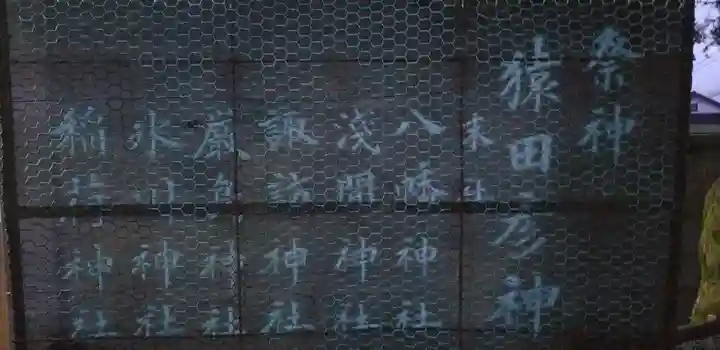 祭神
猿田彦神
末社
八幡神社
浅間神社
諏訪神社
厳島神社
氷川神社
稲荷神社